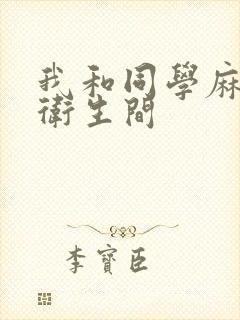 我和同學麻
衛生間
李寶臣